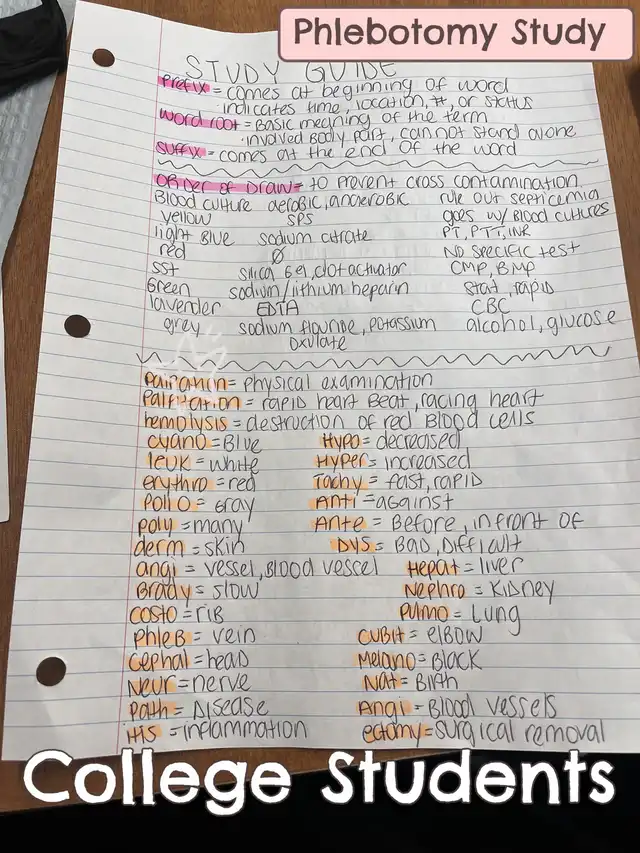 Phlebotomy Study
STUDY GUIDE
Prefix = comes at beginning of word
indicates time, location, #, or status
word root = Basic meaning of the term
involved Body part, cannot stand alone
suffix = comes at the end of the word
Order of Draw = to prevent cross contamination
Blood culture aerobic, anaerobic rule out septicemia
yellow SPS goes w/ Blood cultures
light Blue sodium citrate PT, PTT, INR
red Ø No specific test
SST silica gel, clot activator CMP, BMP
Green sodium/lithium heparin Stat, rapid
lavender EDTA CBC
grey sodium flouride, potassium alcohol, glucose
oxulate
Palpation = physical examination
Palpitation = rapid heart Beat, racing heart
hemolysis = destruction of red Blood cells
cyano = Blue Hypo = decreased
leuk = white Hyper = increased
erythro = red Tachy = fast, rapid
Polio = Gray Anti = against
poly = many Ante = Before, in front of
derm = skin Dys = Bad, Difficult
angi = vessel, Blood vessel Hepat = liver
Brady = slow Nephro = Kidney
costo = rib Pulmo = Lung
Phleb = vein Cubit = elbow
Cephal = head Melano = Black
Neur = nerve Nat = Birth
Path = Disease Angi = Blood vessels
itis = inflammation ectomy = surgical removal
College Students